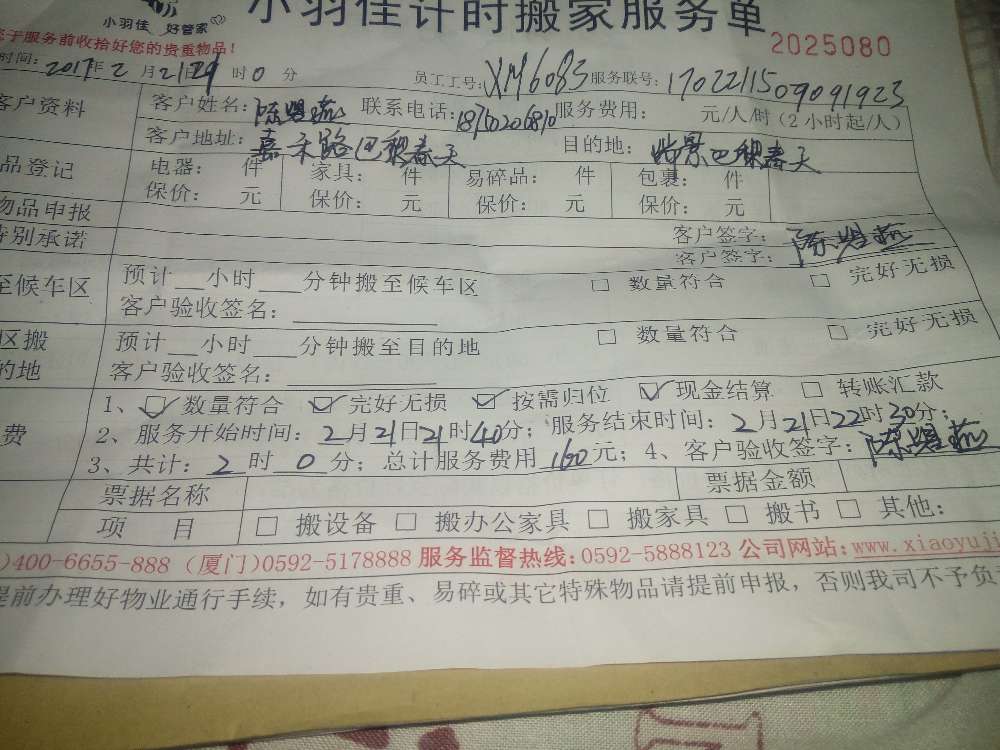 小羽佳 好管家
小羽佳计时搬家服务单
于服务前收拾好您的贵重物品!
2025080
时间: 2017年2月21日 时0分 员工工号: XM6083 服务联号: 1702211509091923
客户资料 客户姓名: 陈 联系电话: 服务费用: 元/人/时(2小时起/人)
客户地址: 嘉禾路巴黎春天 目的地: 巴黎春天
品登记 电器: 件 家具: 件 易碎品: 件 包裹: 件
保价: 元 保价: 元 保价: 元 保价: 元
物品申报 客户签字: 陈
特别承诺 客户签字:
至候车区 预计__小时___分钟搬至候车区 □ 数量符合 □ 完好无损
客户验收签名:
区搬 预计__小时___分钟搬至目的地 □ 数量符合 □ 完好无损
的地 客户验收签名:
1、☑ 数量符合 ☑ 完好无损 ☑ 按需归位 ☑ 现金结算 □ 转账汇款
费 2、服务开始时间: 2月21日21时40分; 服务结束时间: 2月21日22时30分;
3、共计: 2时0分; 总计服务费用 160元; 4、客户验收签字: 陈
票据名称 票据金额
项 目 □ 搬设备 □ 搬办公家具 □ 搬家具 □ 搬书 □ 其他:
)400-6655-888 (厦门)0592-5178888 服务监督热线: 0592-5888123 公司网站: www.xiaoyuji
提前办理好物业通行手续, 如有贵重、易碎或其它特殊物品请提前申报, 否则我司不予负